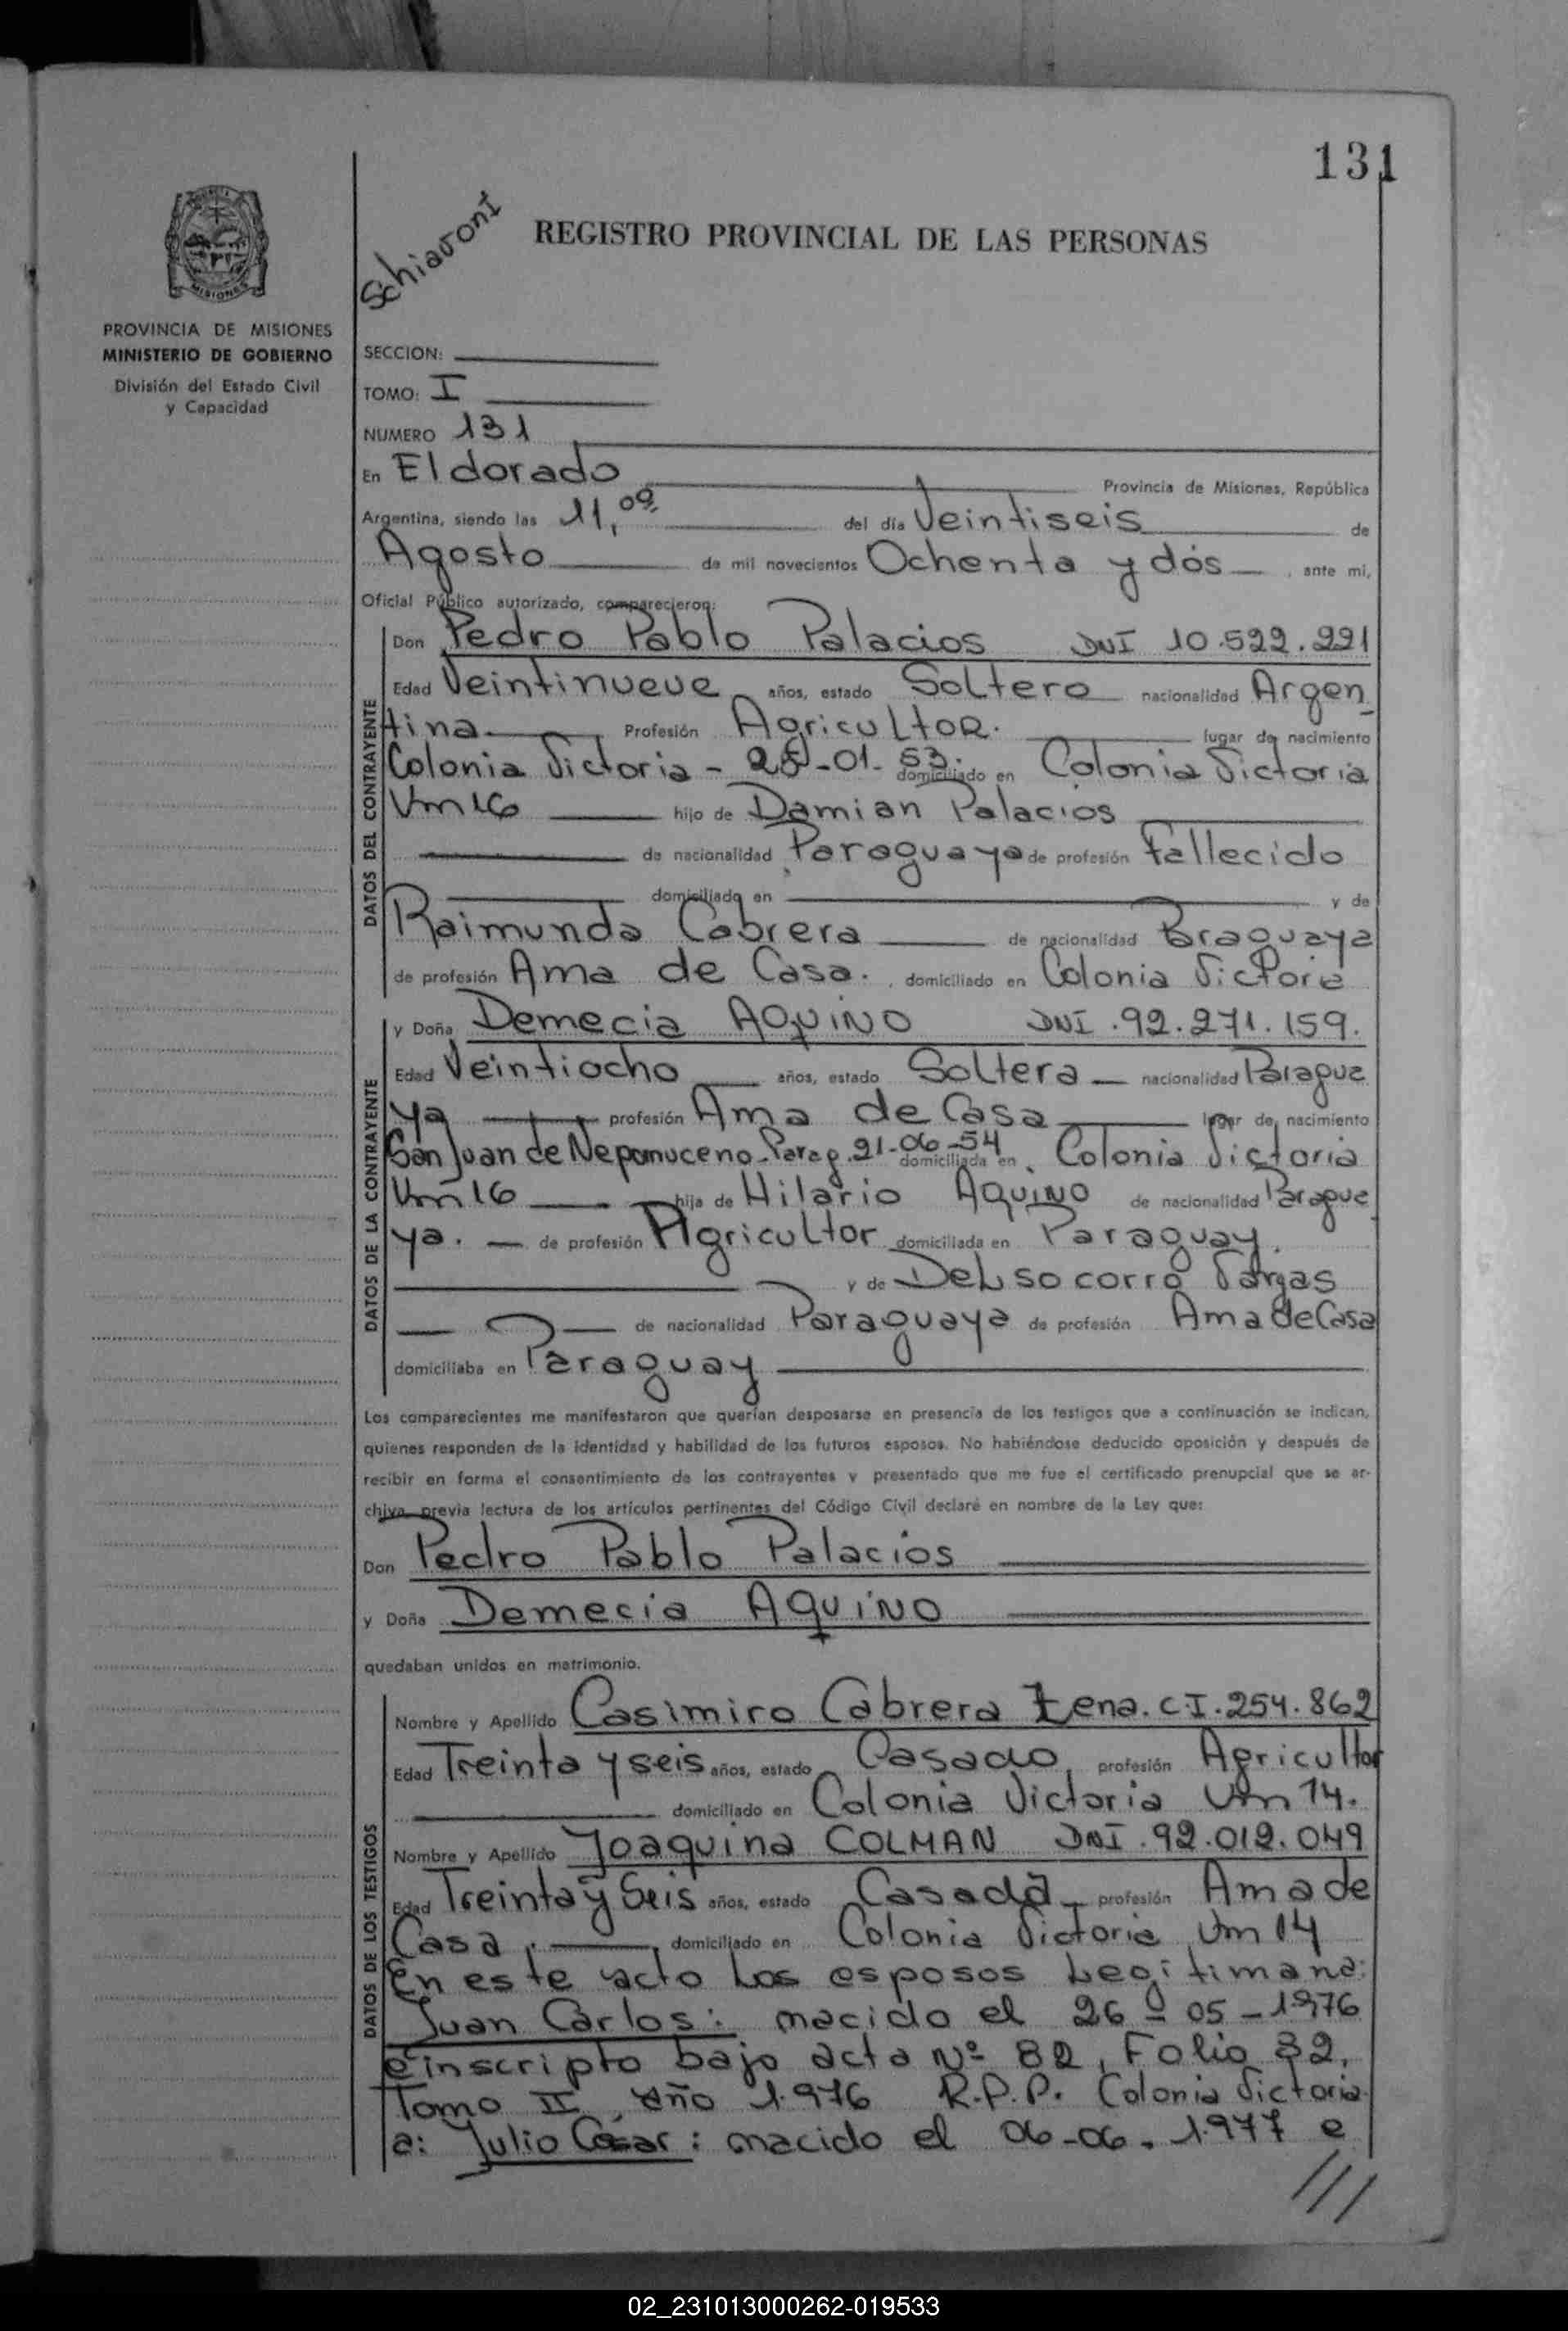 131
Schiavoni
REGISTRO PROVINCIAL DE LAS PERSONAS
MISIONES
PROVINCIA DE MISIONES
MINISTERIO DE GOBIERNO
División del Estado Civil
y Capacidad
SECCION:
TOMO: I
NUMERO 131
En Eldorado Provincia de Misiones, República
Argentina, siendo las 11,00 del día Veintiseis de
Agosto de mil novecientos Ochenta y dós , ante mi,
Oficial Público autorizado, comparecieron:
DATOS DEL CONTRAYENTE
Don Pedro Pablo Palacios DNI 10.522.221
Edad Veintinueve años, estado Soltero nacionalidad Argen
tina Profesión Agricultor. lugar de nacimiento
Colonia Victoria - 25-01-53. domiciliado en Colonia Victoria
Km16 hijo de Damian Palacios
de nacionalidad Paraguaya de profesión Fallecido
domiciliado en y de
Raimunda Cabrera de nacionalidad Paraguaya
de profesión Ama de Casa. , domiciliado en Colonia Victoria
DATOS DE LA CONTRAYENTE
y Doña Demecia AQUINO DNI.92.271.159.
Edad Veintiocho años, estado Soltera nacionalidad Paragua
ya profesión Ama de Casa lugar de nacimiento
San Juan de Nepomuceno-Parag.21-06-54 domiciliada en Colonia Victoria
Km16 hija de Hilario AQUINO de nacionalidad Paragua
ya. de profesión Agricultor domiciliada en Paraguay.
y de DeL socorro Vargas
de nacionalidad Paraguaya de profesión Ama de Casa
domiciliaba en Paraguay
Los comparecientes me manifestaron que querían desposarse en presencia de los testigos que a continuación se indican,
quienes responden de la identidad y habilidad de los futuros esposos. No habiéndose deducido oposición y después de
recibir en forma el consentimiento de los contrayentes y presentado que me fue el certificado prenupcial que se ar-
chiva previa lectura de los artículos pertinentes del Código Civil declaré en nombre de la Ley que:
Don Pedro Pablo Palacios
y Doña Demecia AQUINO
quedaban unidos en matrimonio.
DATOS DE LOS TESTIGOS
Nombre y Apellido Casimiro Cabrera Zena. C.I.254.862
Edad Treinta y seis años, estado Casado profesión Agricultor
domiciliado en Colonia Victoria Km 14.
Nombre y Apellido Joaquina COLMAN DNI.92.012.049
Edad Treinta y Seis años, estado Casada profesión Ama de
Casa. domiciliado en Colonia Victoria Km 14
En este acto Los esposos Legitiman a:
Juan Carlos: nacido el 26-05-1976
e inscripto bajo acta Nº 82, Folio 32,
Tomo II, año 1.976 R.P.P. Colonia Victoria
a: Julio César: nacido el 06-06-1.977 e
///
02_231013000262-019533